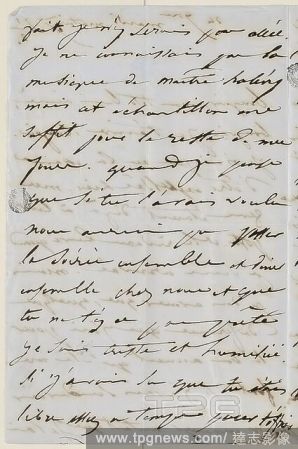 fait je n'y serais pas allée
Je ne connaissais pas la
musique de maître Halévy
mais cet échantillon me
suffit pour le reste de mes
jours. quand je pense
que si tu l'avais voulu
nous aurions pu passer
la soirée ensemble et dîner
ensemble chez nous et que
tu ne t'
je suis triste et humiliée.
Si j'avais su que tu étais
libre assez à temps pour
TPG
www.tpgnews.com/達志影像